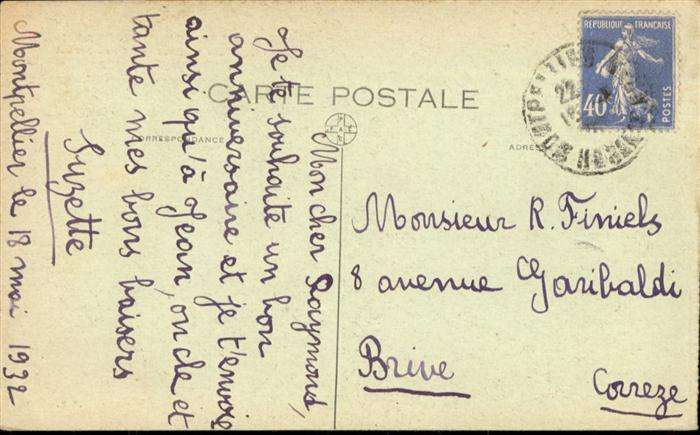 CARTE POSTALE
CORRESPONDANCE
Mon cher Raymond,
Je te souhaite un bon
anniversaire et je t'envoie
ainsi qu'à Jean, oncle et
tante mes bons baisers
Suzette
Montpellier le 18 mai 1932
REPUBLIQUE FRANÇAISE
40
POSTES
Monsieur R. Finiels
8 avenue Garibaldi
Brive
Correze